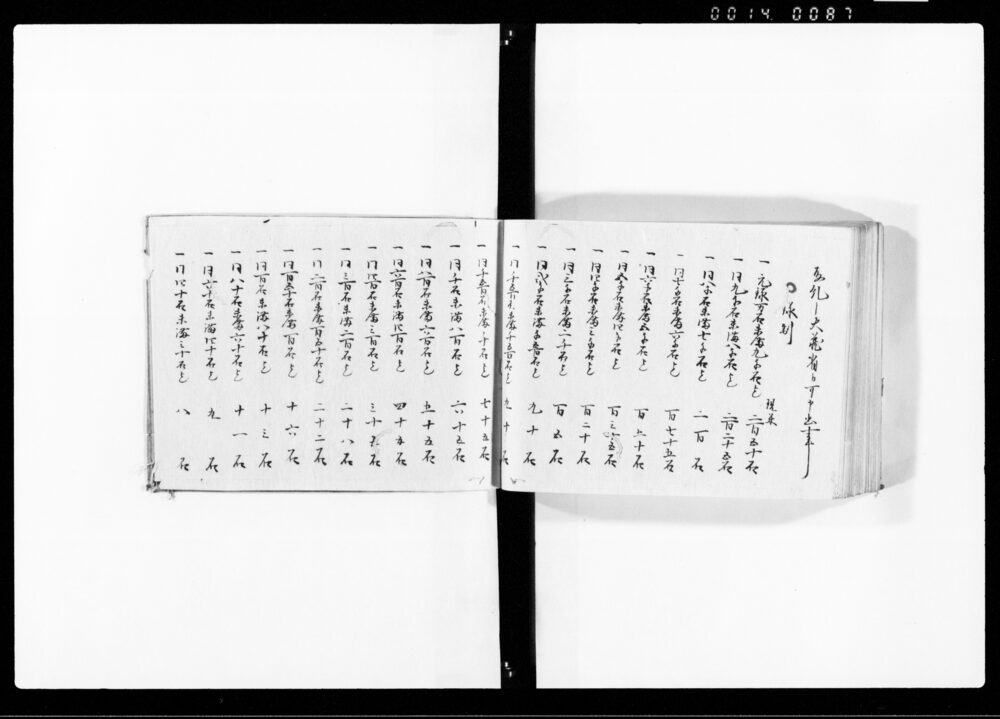 0014 0087
相糺し大蔵省江可申出事
禄制
一元禄万石未満九千石迄 現米 二百五十石
一同九千石未満八千石迄 二百二十五石
一同八千石未満七千石迄 二百石
一同七千石未満六千石迄 百七十五石
一同六千石未満五千石迄 百五十石
一同五千石未満四千石迄
一同四千石未満三千石迄 百二十石
一同三千石未満二千石迄 百五石
一同弐千石未満千五百石迄 九十石
一同千五百石未満
一同千石未満八百石迄 六十五石
一同八百石未満六百石迄 五十五石
一同六百石未満四百石迄 四十五石
一同四百石未満三百石迄 三十五石
一同三百石未満二百石迄 二十八石
一同二百石未満百五十石迄 二十二石
一同百五十石未満百石迄 十六石
一同百石未満八十石迄 十三石
一同八十石未満六十石迄 十一石
一同六十石未満四十石迄 九石
一同四十石未満三十石迄 八石